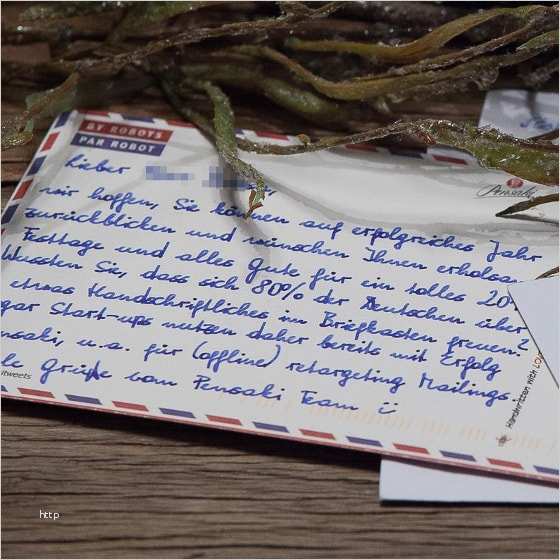 BY ROBOTS
PAR ROBOT
Lieber
wir hoffen, Sie können auf erfolgreiches Jahr
zurückblicken und wünschen Ihnen erholsa
Festtage und alles Gute für ein tolles 20
Wussten Sie, dass sich 80% der Deutschen über
etwas Handschriftliches im Briefkasten freuen?
gar Start-ups nutzen daher bereits mit Erfolg
nsaki, u.a. für (offline) retargeting Mailings
le Grüße vom Pensaki Team
tweets
Handwritten with LO
http